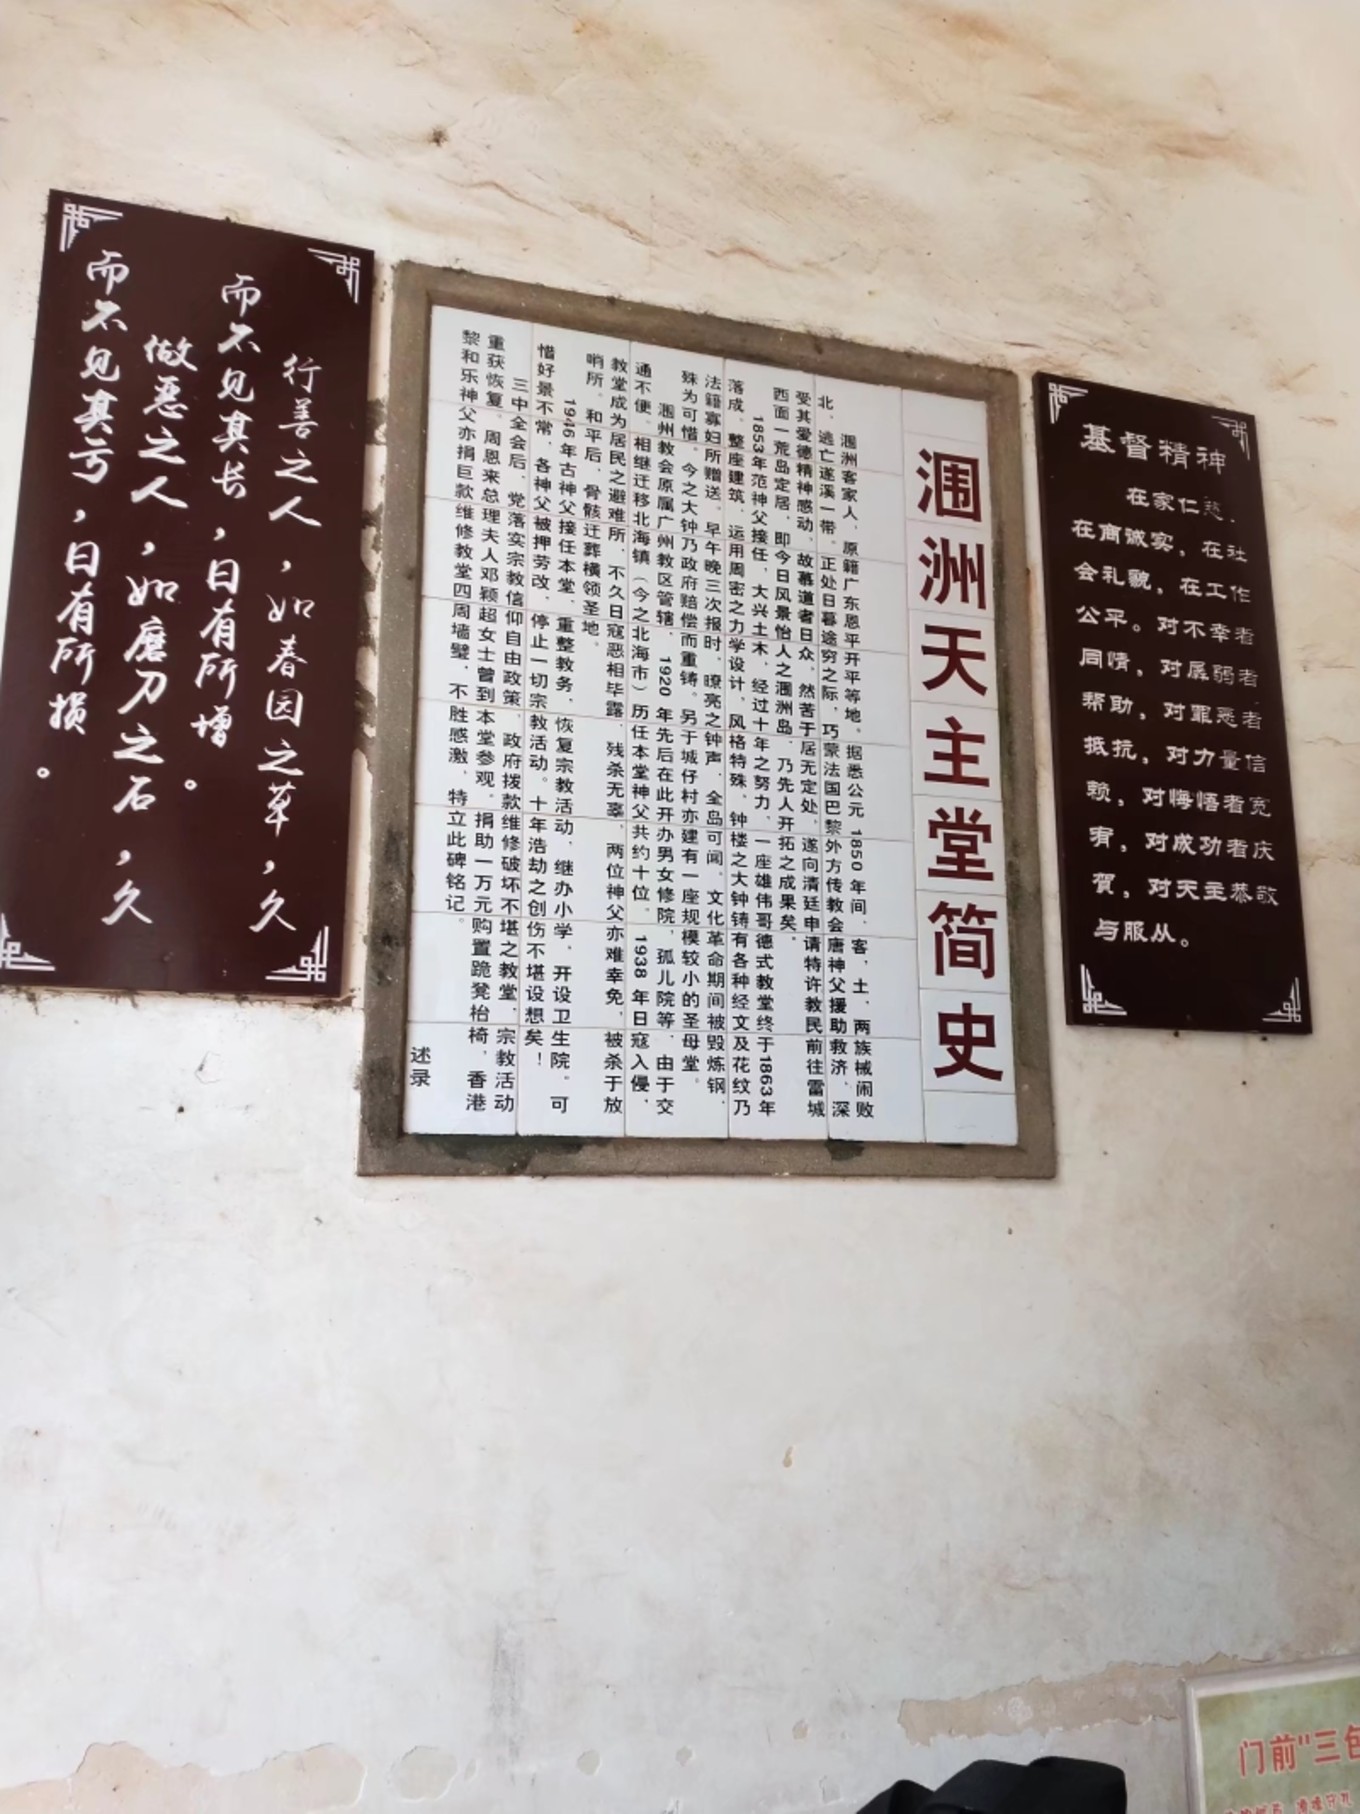 基督精神
在家仁慈，
在商诚实，在社
会礼貌，在工作
公平。对不幸者
同情，对孱弱者
帮助，对罪恶者
抵抗，对力量信
赖，对悔悟者宽
宥，对成功者庆
贺，对天主恭敬
与服从。
涠洲天主堂简史
涠洲客家人，原籍广东恩平开平等地。据悉公元1850年间，客、土，两族械闹败
北，逃亡遂溪一带。正处日暮途穷之际，巧蒙法国巴黎外方传教会唐神父援助救济，深
受其爱德精神感动，故慕道者日众，然苦于居无定处，遂向清廷申请特许教民前往雷城
西面一荒岛定居，即今日风景怡人之涠洲岛，乃先人开拓之成果矣。
1853年范神父接任，大兴土木，经过十年之努力，一座雄伟哥德式教堂终于1863年
落成，整座建筑，运用周密之力学设计，风格特殊，钟楼之大钟铸有各种经文及花纹乃
法籍寡妇所赠送，早午晚三次报时，嘹亮之钟声，全岛可闻，文化革命期间被毁炼钢，
殊为可惜。今之大钟乃政府赔偿而重铸。另于城仔村亦建有一座规模较小的圣母堂。
涠州教会原属广州教区管辖，1920年先后在此开办男女修院，孤儿院等，由于交
通不便，相继迁移北海镇（今之北海市）历任本堂神父共约十位。1938年日寇入侵，
教堂成为居民之避难所，不久日寇恶相毕露，残杀无辜，两位神父亦难幸免，被杀于放
哨所。和平后，骨骸迁葬横领圣地。
1946年古神父接任本堂，重整教务，恢复宗教活动，继办小学，开设卫生院。可
惜好景不常，各神父被押劳改，停止一切宗教活动。十年浩劫之创伤不堪设想矣！
三中全会后，党落实宗教信仰自由政策，政府拨款维修破坏不堪之教堂，宗教活动
重获恢复，周恩来总理夫人邓颖超女士曾到本堂参观，捐助一万元购置跪凳枱椅，香港
黎和乐神父亦捐巨款维修教堂四周墙壁，不胜感激，特立此碑铭记。
述录
行善之人，如春园之草，久
而不见其长，日有所增。
做恶之人，如磨刀之石，久
而不见其亏，日有所损。
门前"三包